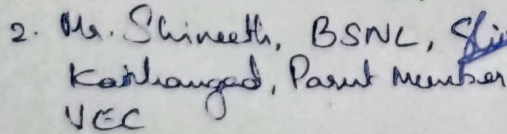 2. Mr. Shineeth, BSNL,
Kanhangad, Parent Member
VEC